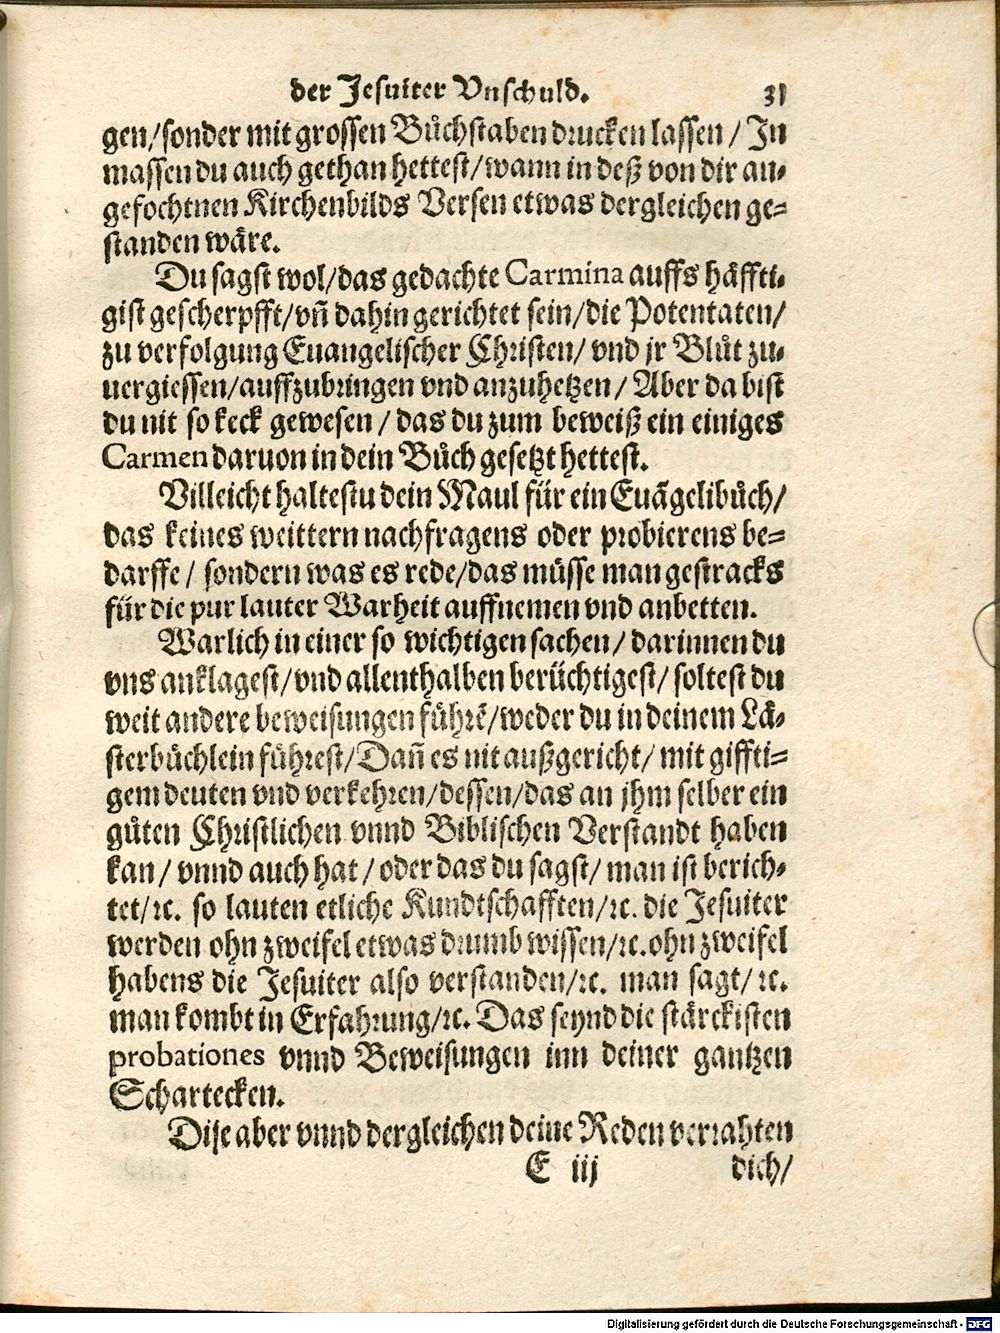 der Jesuiter Vnschuld. 31
gen/sonder mit grossen Bůchstaben drucken lassen / In
massen du auch gethan hettest/wann in deß von dir an-
gefochtnen Kirchenbilds Versen etwas dergleichen ge-
standen wäre.
Du sagst wol/das gedachte Carmina auffs häffti-
gist gescherpfft/vñ dahin gerichtet sein/die Potentaten/
zu verfolgung Euangelischer Christen/ vnd jr Blůt zu-
uergiessen/auffzubringen vnd anzuhetzen / Aber da bist
du nit so keck gewesen / das du zum beweiß ein einiges
Carmen daruon in dein Bůch gesetzt hettest.
Villeicht haltestu dein Maul für ein Euãgelibůch/
das keines weittern nachfragens oder probierens be-
darffe / sondern was es rede/das müsse man gestracks
für die pur lauter Warheit auffnemen vnd anbetten.
Warlich in einer so wichtigen sachen / darinnen du
vns anklagest/vnd allenthalben berüchtigest/ soltest du
weit andere beweisungen führẽ/weder du in deinem Lä-
sterbüchlein führest/Dañ es nit außgericht/ mit giffti-
gem deuten vnd verkehren/dessen/das an jhm selber ein
gůten Christlichen vnnd Biblischen Verstandt haben
kan/ vnnd auch hat / oder das du sagst/ man ist berich-
tet/ꝛc. so lauten etliche Kundtschafften/ꝛc. die Jesuiter
werden ohn zweifel etwas drumb wissen/ꝛc. ohn zweifel
habens die Jesuiter also verstanden/ꝛc. man sagt/ ꝛc.
man kombt in Erfahrung/ꝛc. Das seynd die stärckisten
probationes vnnd Beweisungen inn deiner gantzen
Schartecken.
Dise aber vnnd dergleichen deine Reden verrahten
E iij dich/
Digitalisierung gefördert durch die Deutsche Forschungsgemeinschaft - DFG